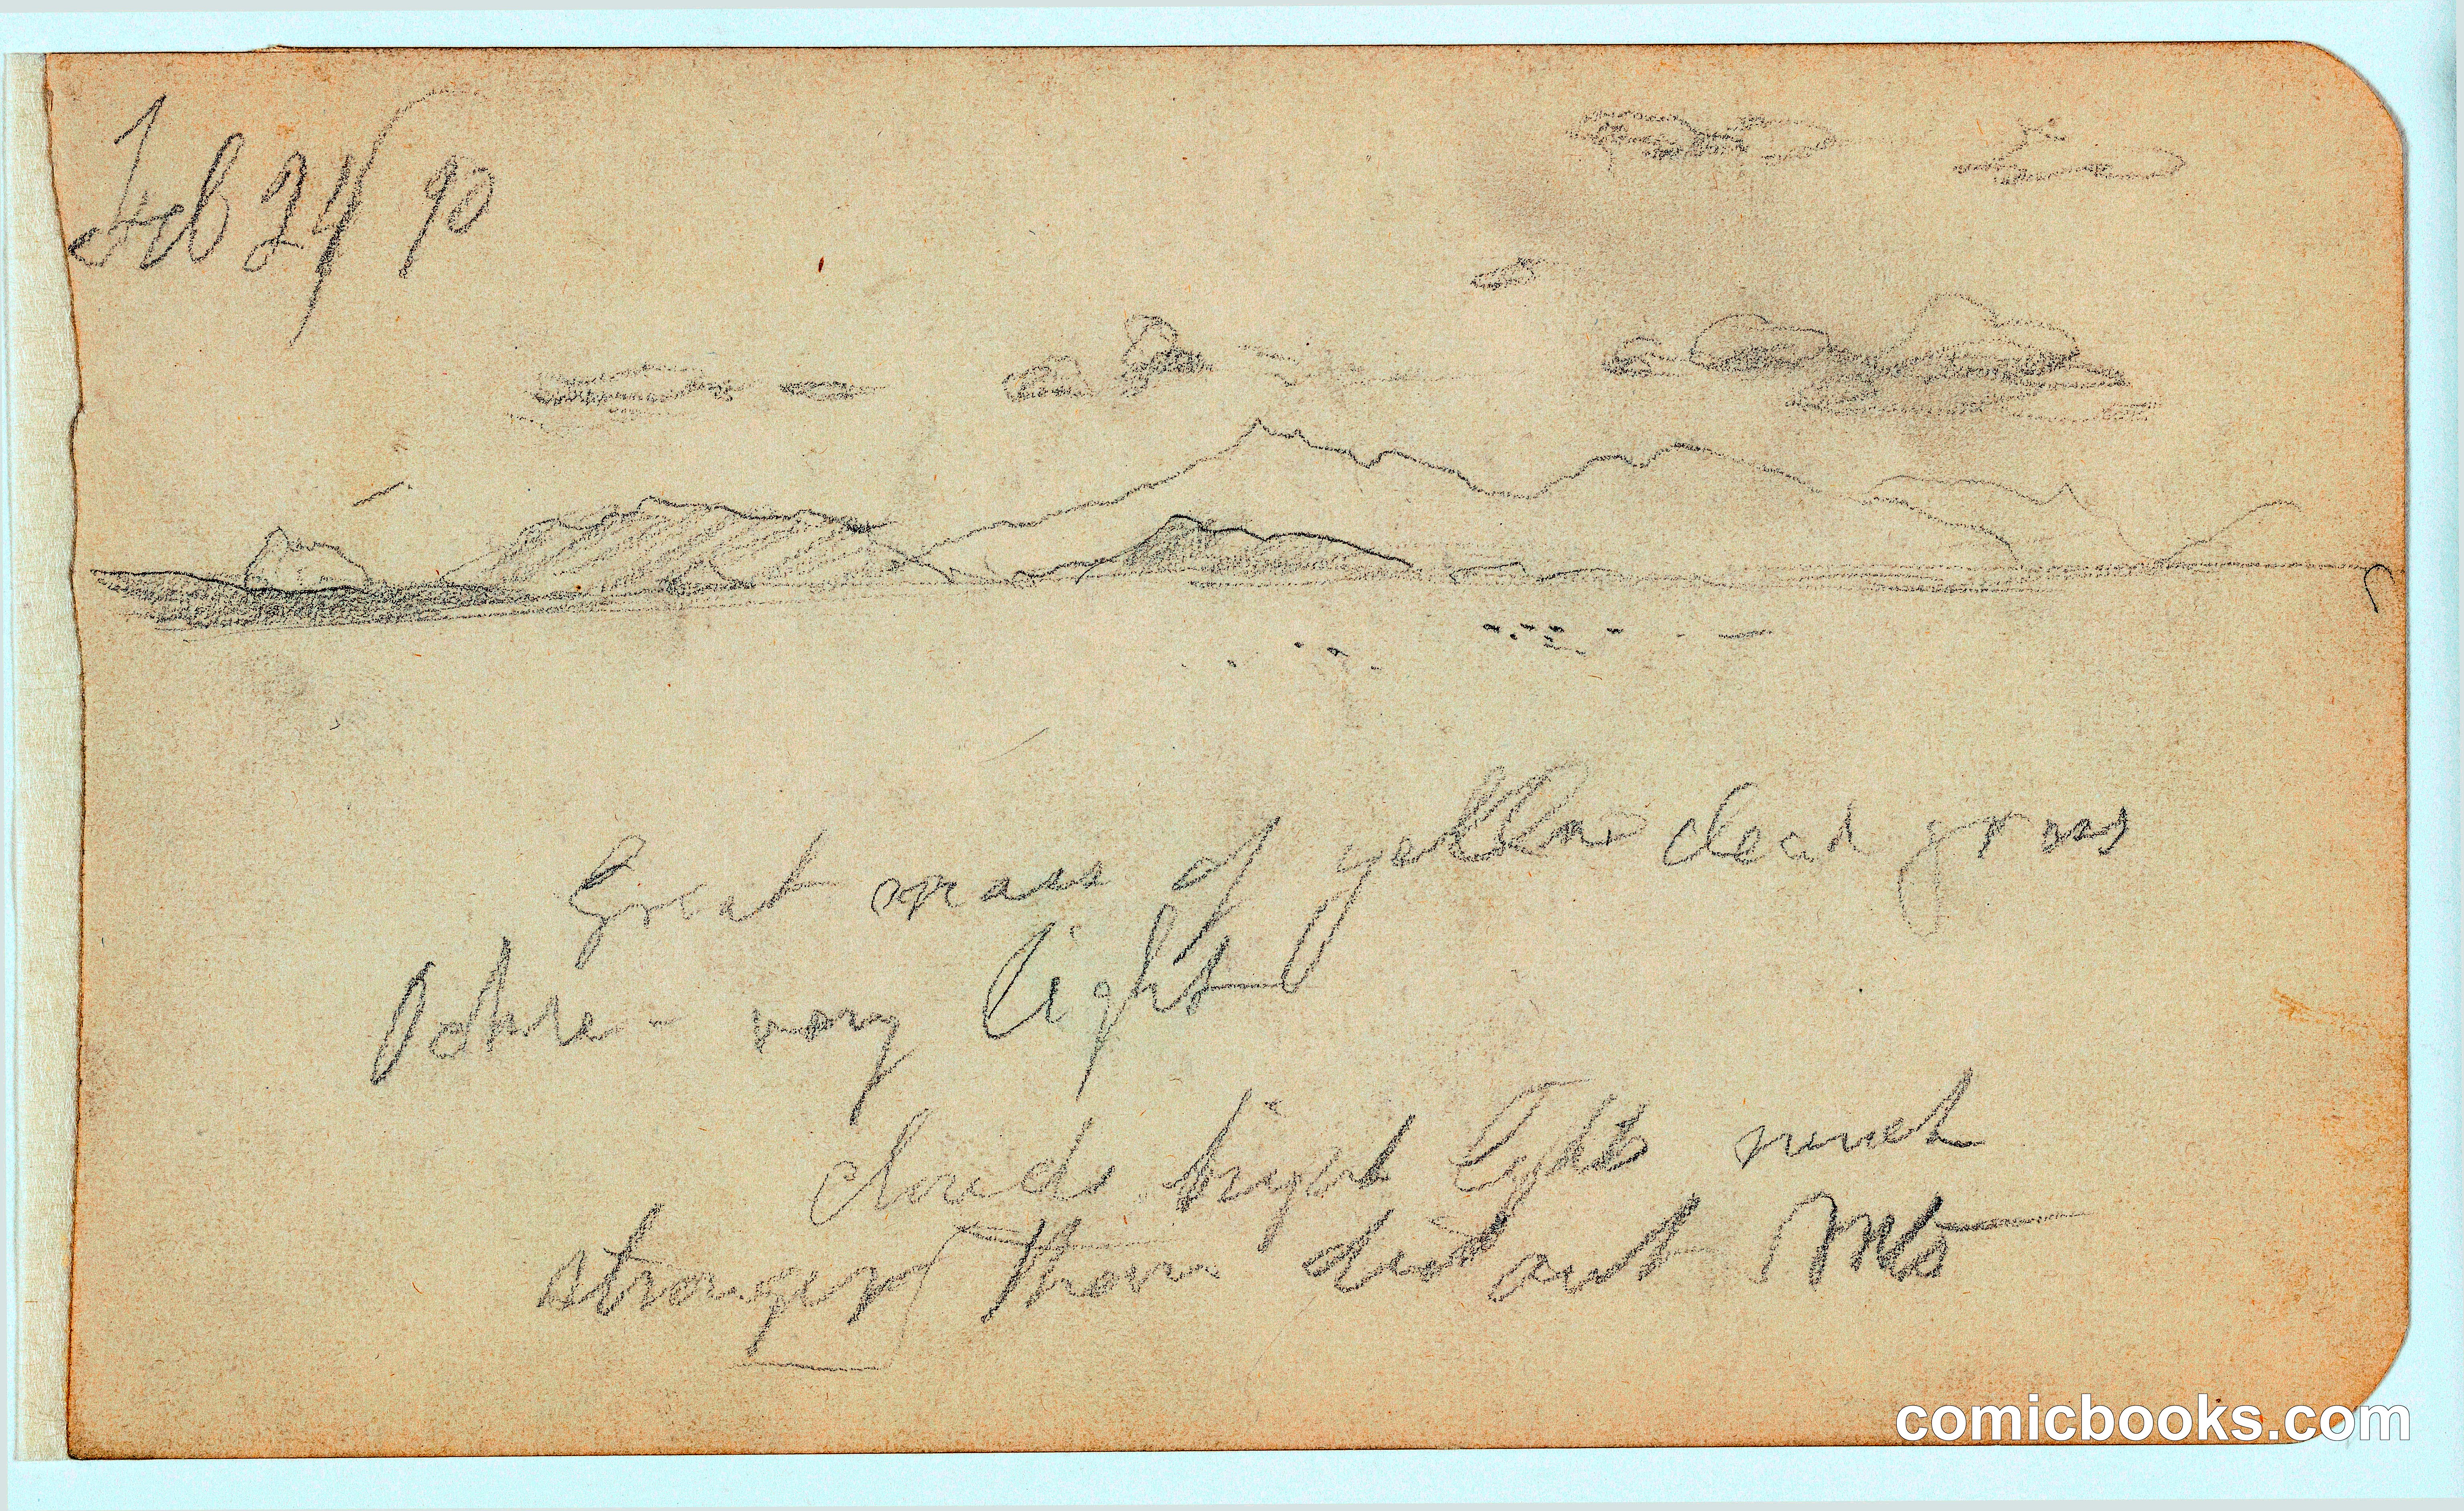 Feb 24/90
Great mass of yellow dead grass
Ochre - very light
clouds bright light much
stronger than distant Mts
comicbooks.com